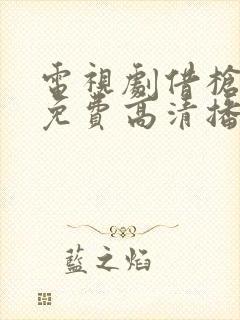 電視劇借槍
免費高清播
藍之焰